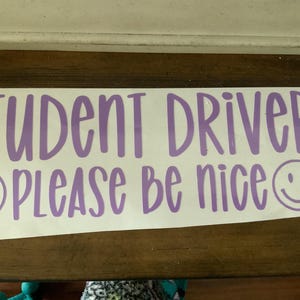 STUDENT DRIVER
PLEASE BE NICE